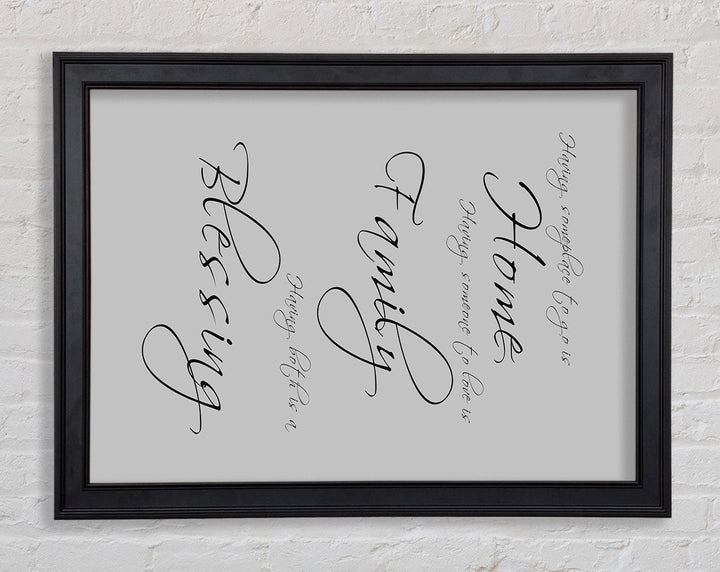 Having someplace to go is
Home
Having someone to love is
Family
Having both is a
Blessing